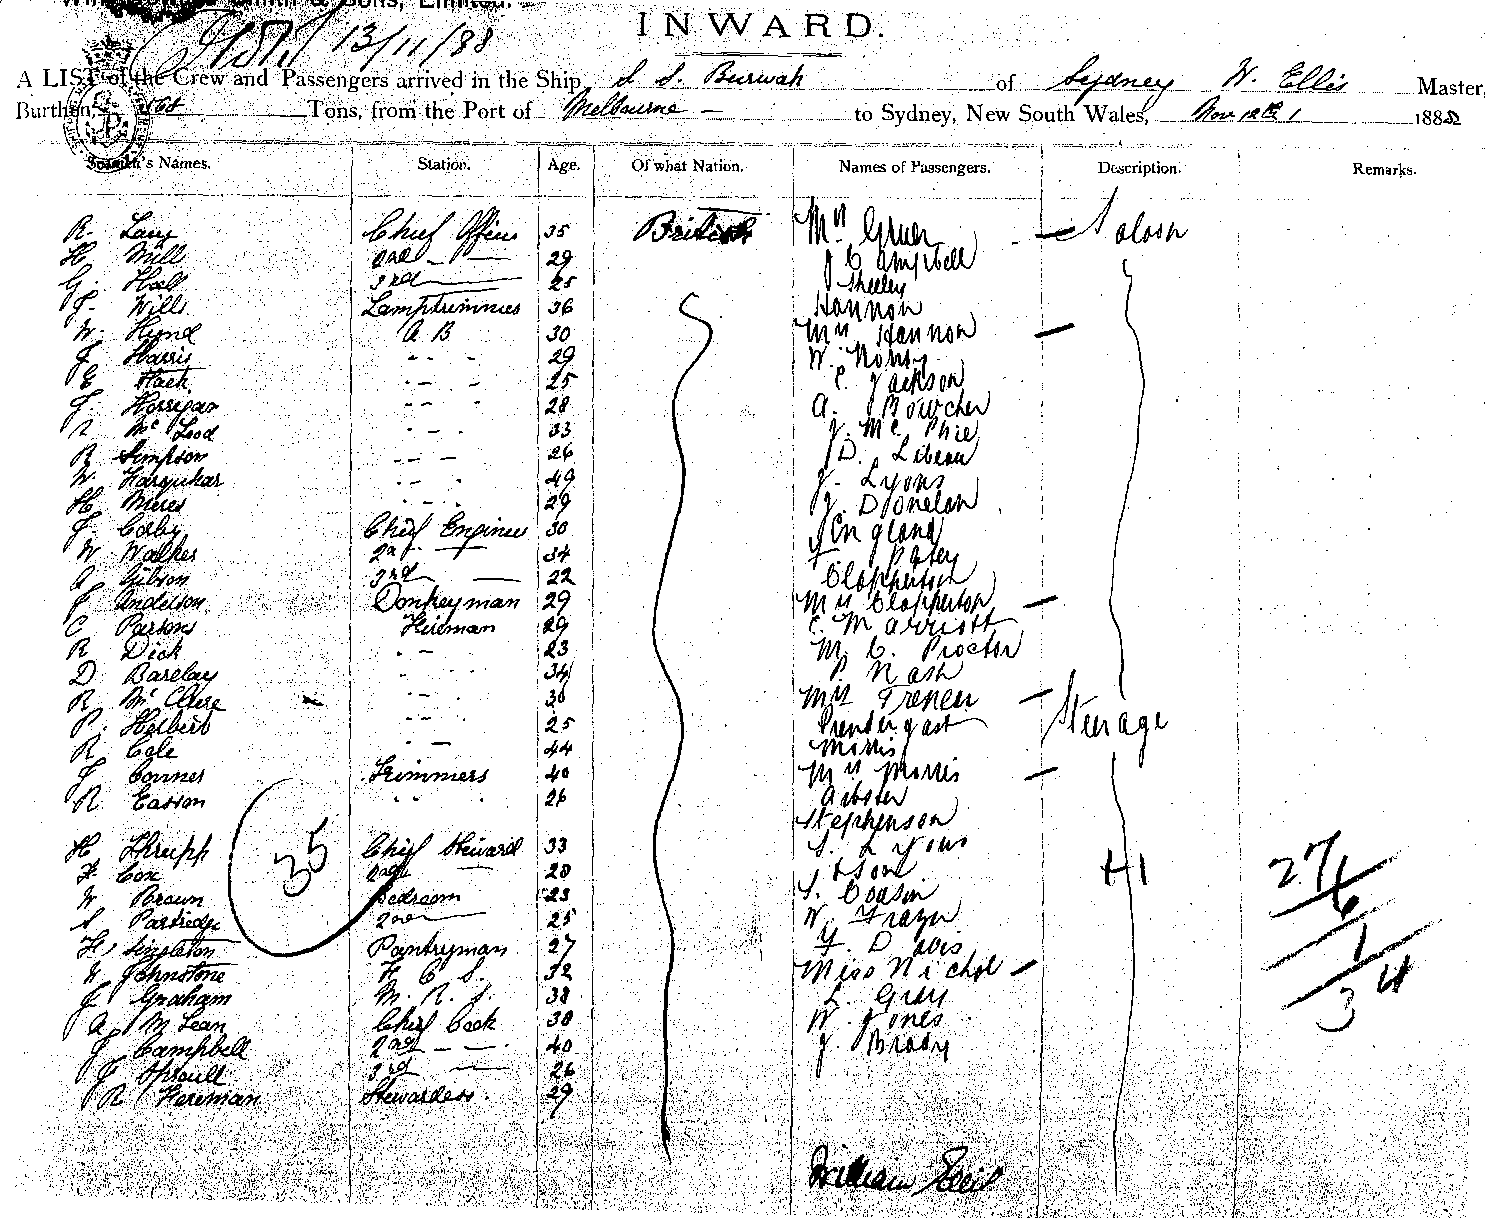 & Sons, Limited.
INWARD.
13/11/88
A LIST of the Crew and Passengers arrived in the Ship S. S. Burwah of Sydney W. Ellis Master,
Burthen, Tons, from the Port of Melbourne to Sydney, New South Wales, Nov 188
Names. Station. Age. Of what Nation. Names of Passengers. Description. Remarks.
R. Chief Officer 35 British Mrs Saloon
H. Mill 2nd 29 J Campbell
G. Hall 3rd 25
J. Wills Lamptrimmer 36 Hannon
W. Hynd A B 30 Mrs Hannon
J. Harris " " 29 W.
E. " " 25 C. Jackson
J. Horrigan " " 28 A. Bowcher
R Mc Leod " " 33 J. Mc Phie
R Simpson " " 26 D.
W. Farquhar " " 49 J. Lyons
H. " " 29 J. Donelan
J. Colby Chief Engineer 30 England
W Walker 2nd 34
A Gibson 3rd 22 Clapperton
J Anderson Donkeyman 29 Mrs Clapperton
C Parsons Fireman 29 C. Marriott
R Dick " 23 M. C. Proctor
D. Barclay " 34 P. Nash
R McClure " 30 Mrs
P. Herbert " 25 Prendergast Steerage
R Cole " 44 Morris
J. Conner Trimmers 40 Mrs Morris
R. Easson " " 26
Stephenson
H Thrupp Chief Steward 33 S. Lyons
F Cox 2nd 28
W Brown Bedroom 23 S.
S. Partridge 2nd 25 W. Frazer
35
H. Singleton Pantryman 27 F. Davis
Johnstone F. C. S. 32 Miss Nichol
J Graham M. R. S. 38 L. Gray
A McLean Chief Cook 30 W. Jones
J Campbell 2nd 40 J. Brady
J Sproull 3rd 26
R Stewardess. 29
41
27
6
1
34
William Ellis